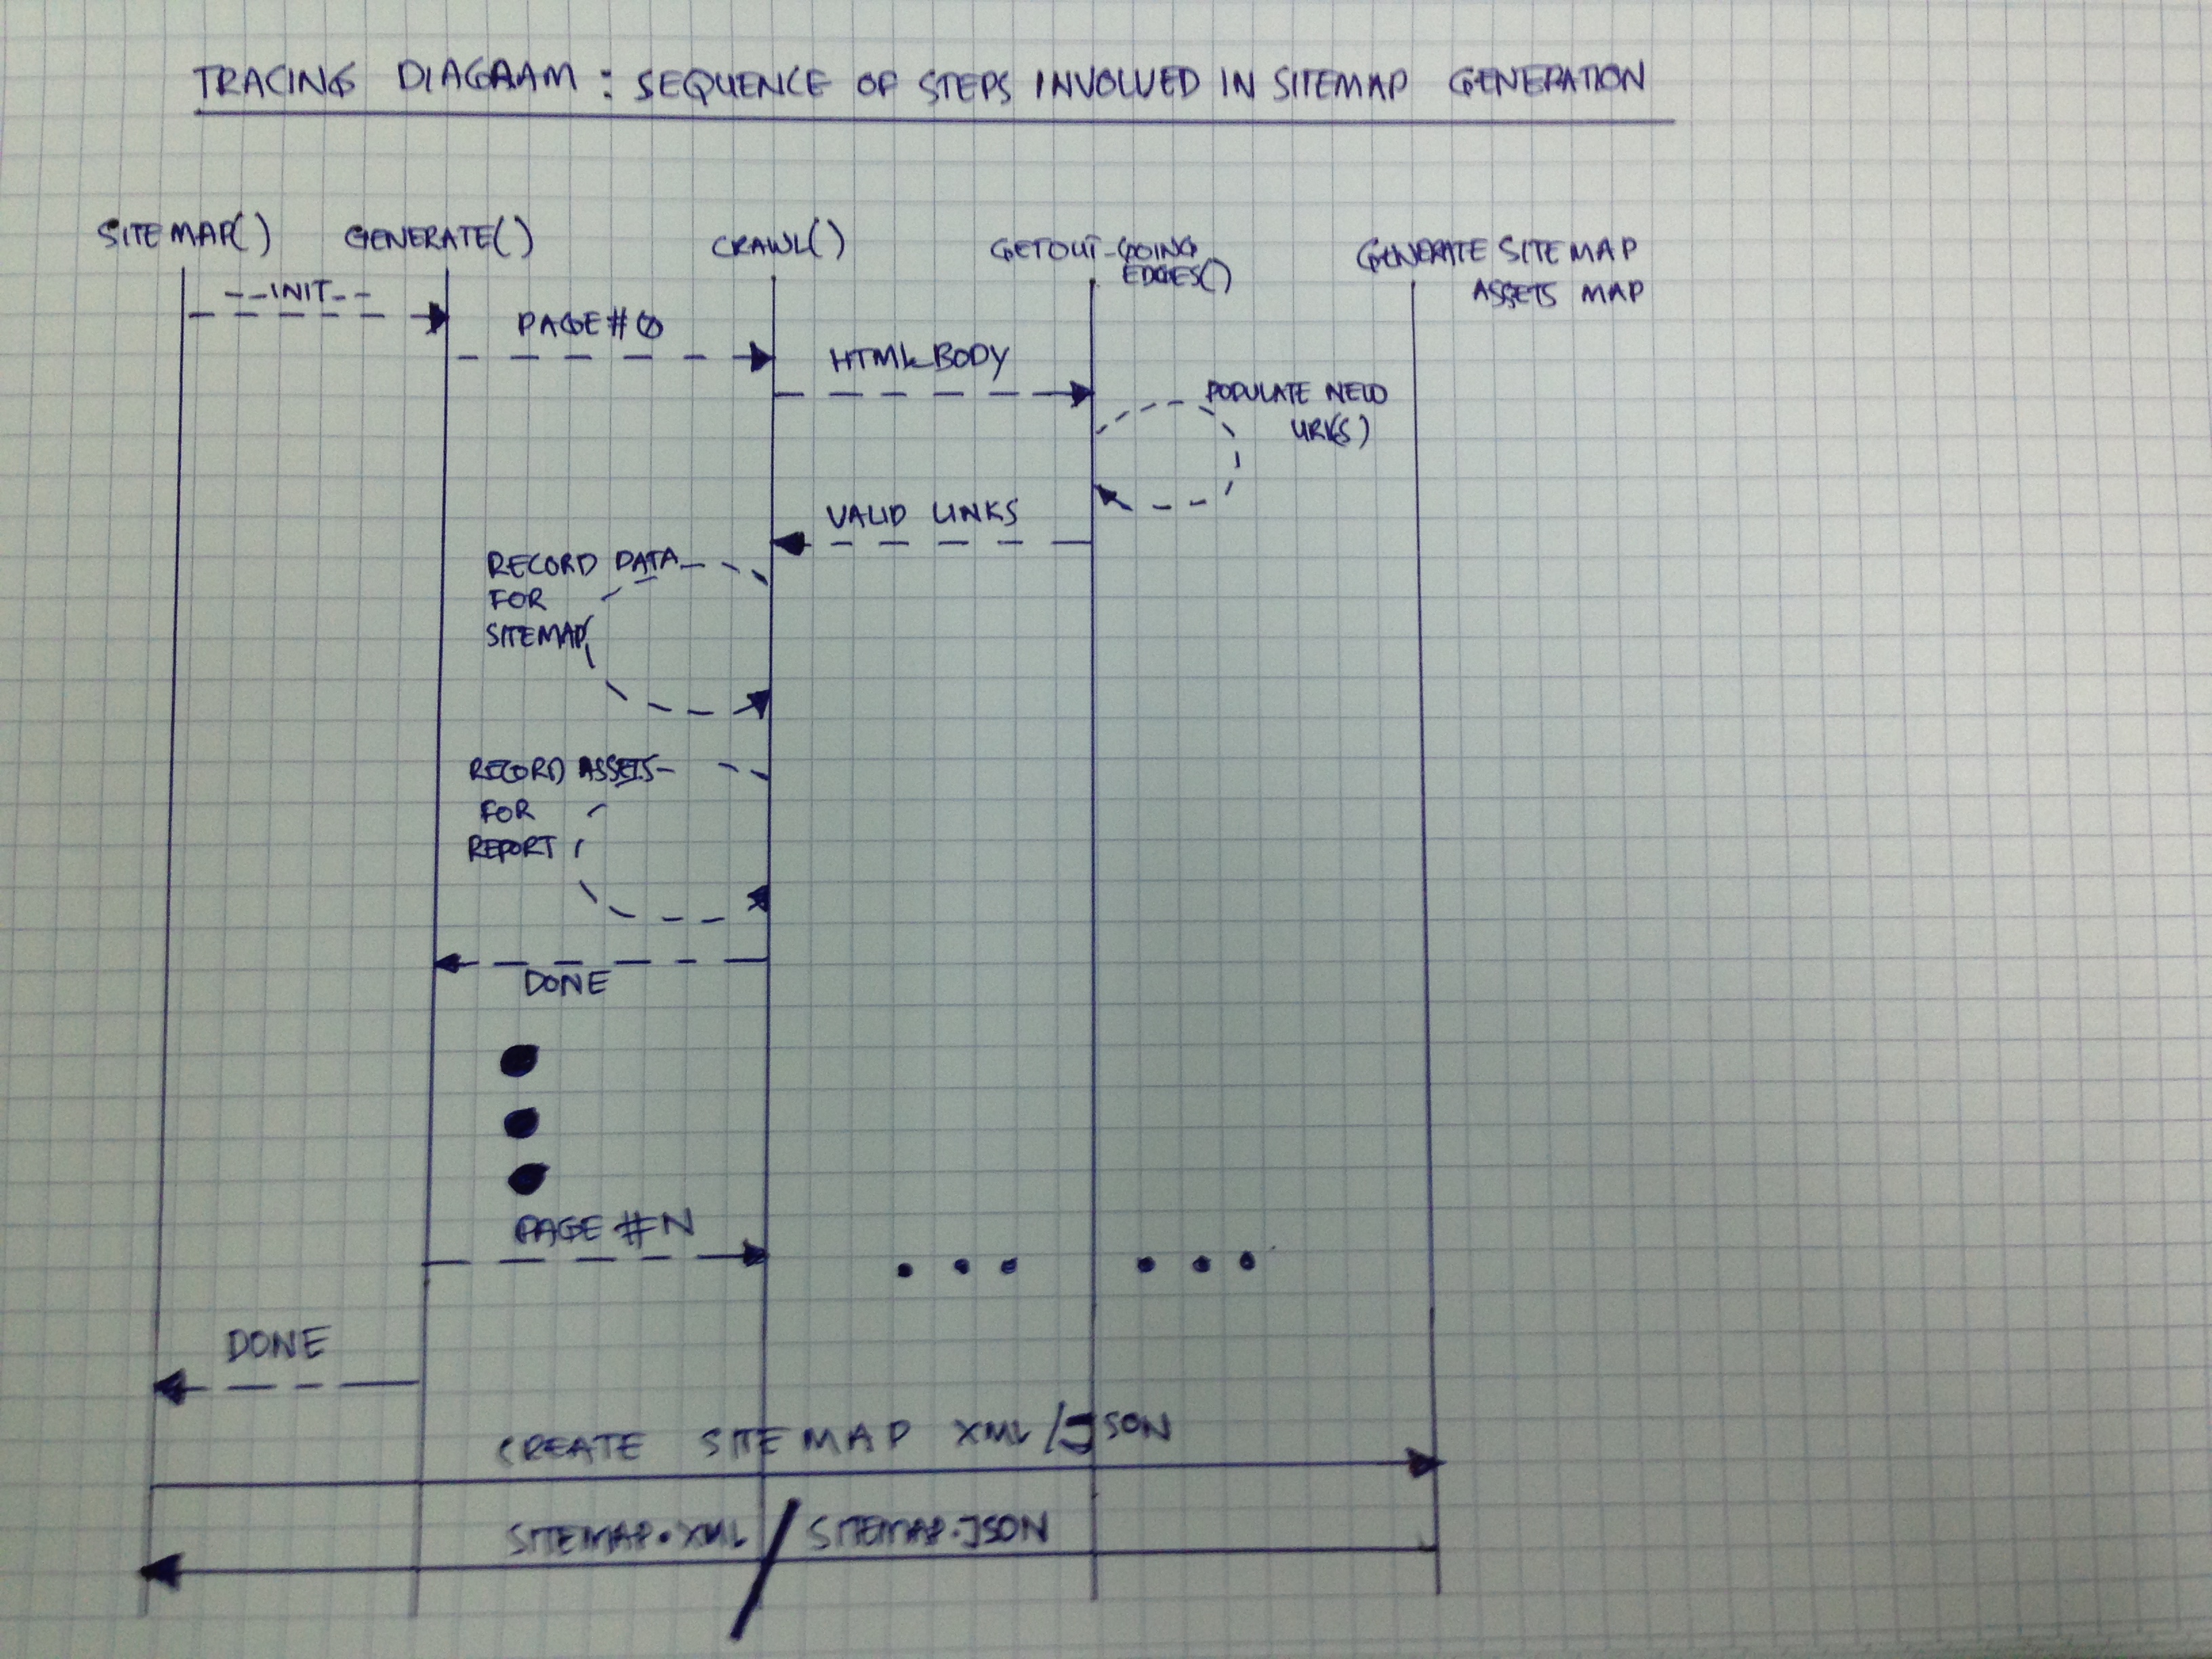 TRACING DIAGAAM : SEQUENCE OF STEPS INVOLVED IN SITEMAP GENERATION
SITEMAP() GENERATE() CRAWL() GETOUT-GOING EDGES() GENERATE SITEMAP
ASSETS MAP
INIT
PAGE#0
HTML BODY
POPULATE NEW
URL(S)
VALID LINKS
RECORD DATA
FOR
SITEMAP
RECORD ASSETS
FOR
REPORT
DONE
PAGE#N
DONE
CREATE SITEMAP XML/JSON
SITEMAP.XML / SITEMAP.JSON